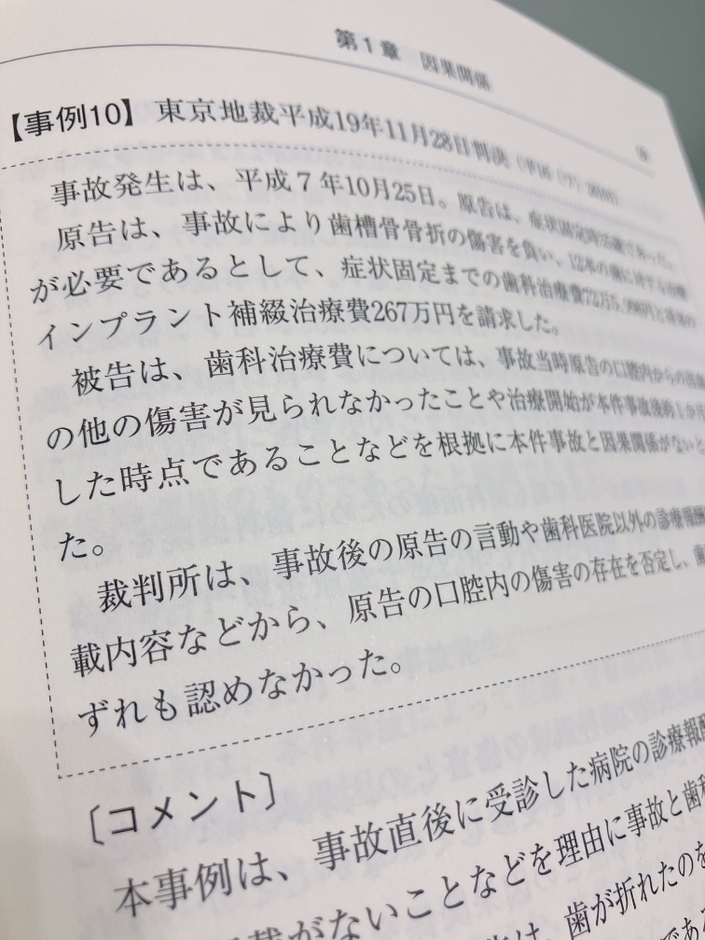 第1章　因果関係
【事例10】　東京地裁平成19年11月28日判決
事故発生は、平成7年10月25日。原告は、症状固定時
原告は、事故により歯槽骨骨折の傷害を負い、12本の歯に対する治療
が必要であるとして、症状固定までの歯科治療費
インプラント補綴治療費267万円を請求した。
被告は、歯科治療費については、事故当時原告の口腔内からの
の他の傷害が見られなかったことや治療開始が本件事故後約1か月
した時点であることなどを根拠に本件事故と因果関係がないと
た。
裁判所は、事故後の原告の言動や歯科医院以外の診療報酬
載内容などから、原告の口腔内の傷害の存在を否定し、
ずれも認めなかった。
〔コメント〕
本事例は、事故直後に受診した病院の診療報酬
載がないことなどを理由に事故と歯科
は、歯が折れたのを